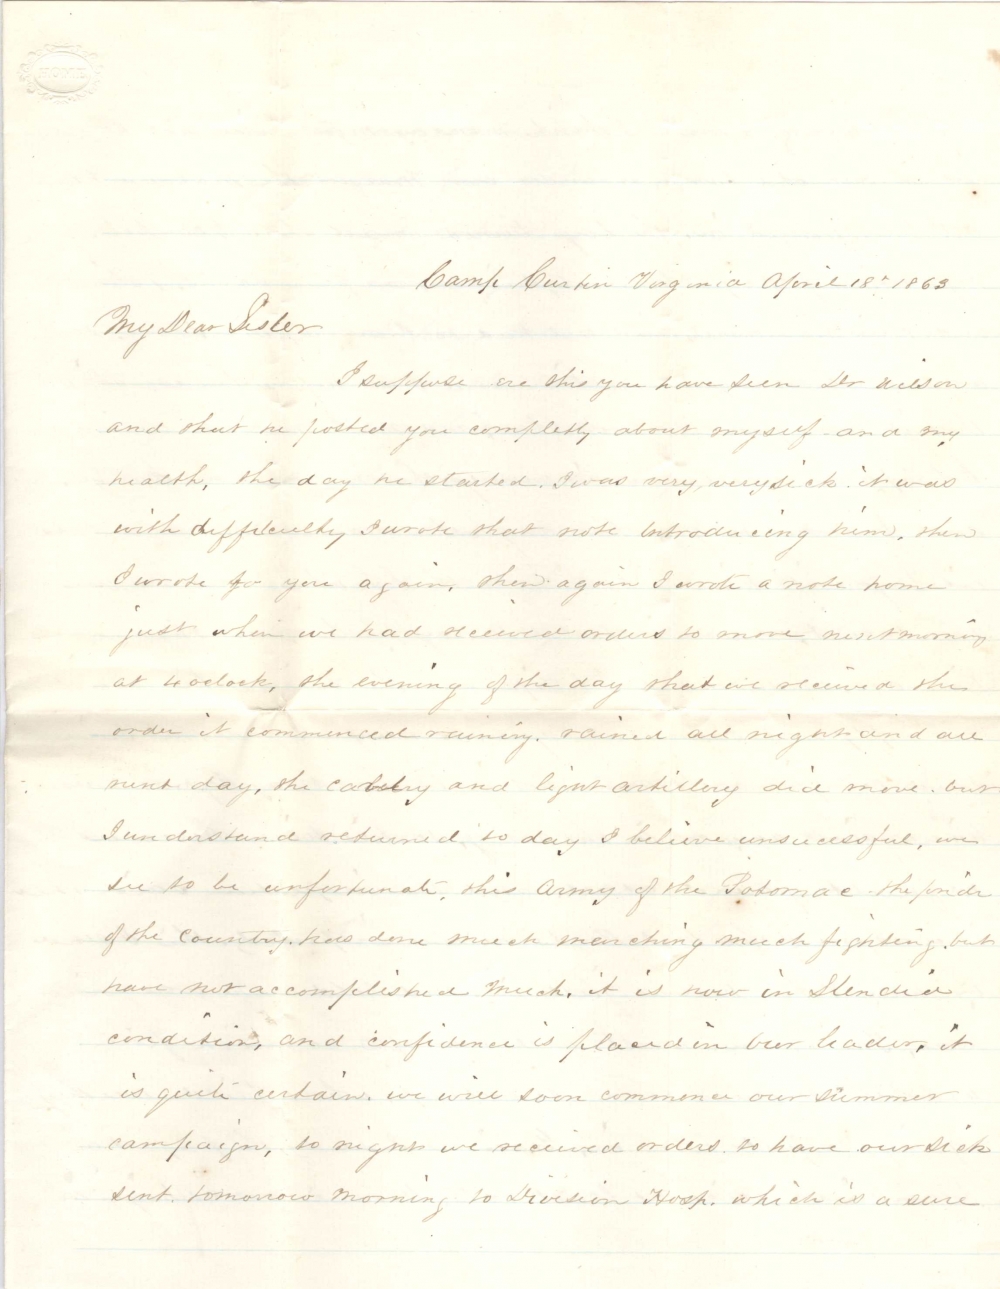 HOME
Camp Curtin Virginia April 18th 1863
My Dear Sister
I suppose ere this you have seen Dr Wilson
and that he posted you completly about myself and my
health, the day he started. I was very, very sick. it was
with difficulty I wrote that note introducing him, then
I wrote to you again, then again I wrote a note home
just when we had received orders to move next morning
at 4 oclock, the evening of the day that we received the
order it commenced raining. rained all night and all
next day, the cavelry and light artillery did move. but
I understand returned to day I believe unsucessful, we
see to be unfortunate, this Army of the Potomac the pride
of the country. has done much marching much fighting. but
have not accomplished much, it is now in Slendid
condition, and confidence is placed in our leader, it
is quite certain. we will soon commence our summer
campaign, to night we received orders to have our sick
sent tomorrow morning to Division Hosp. which is a sure